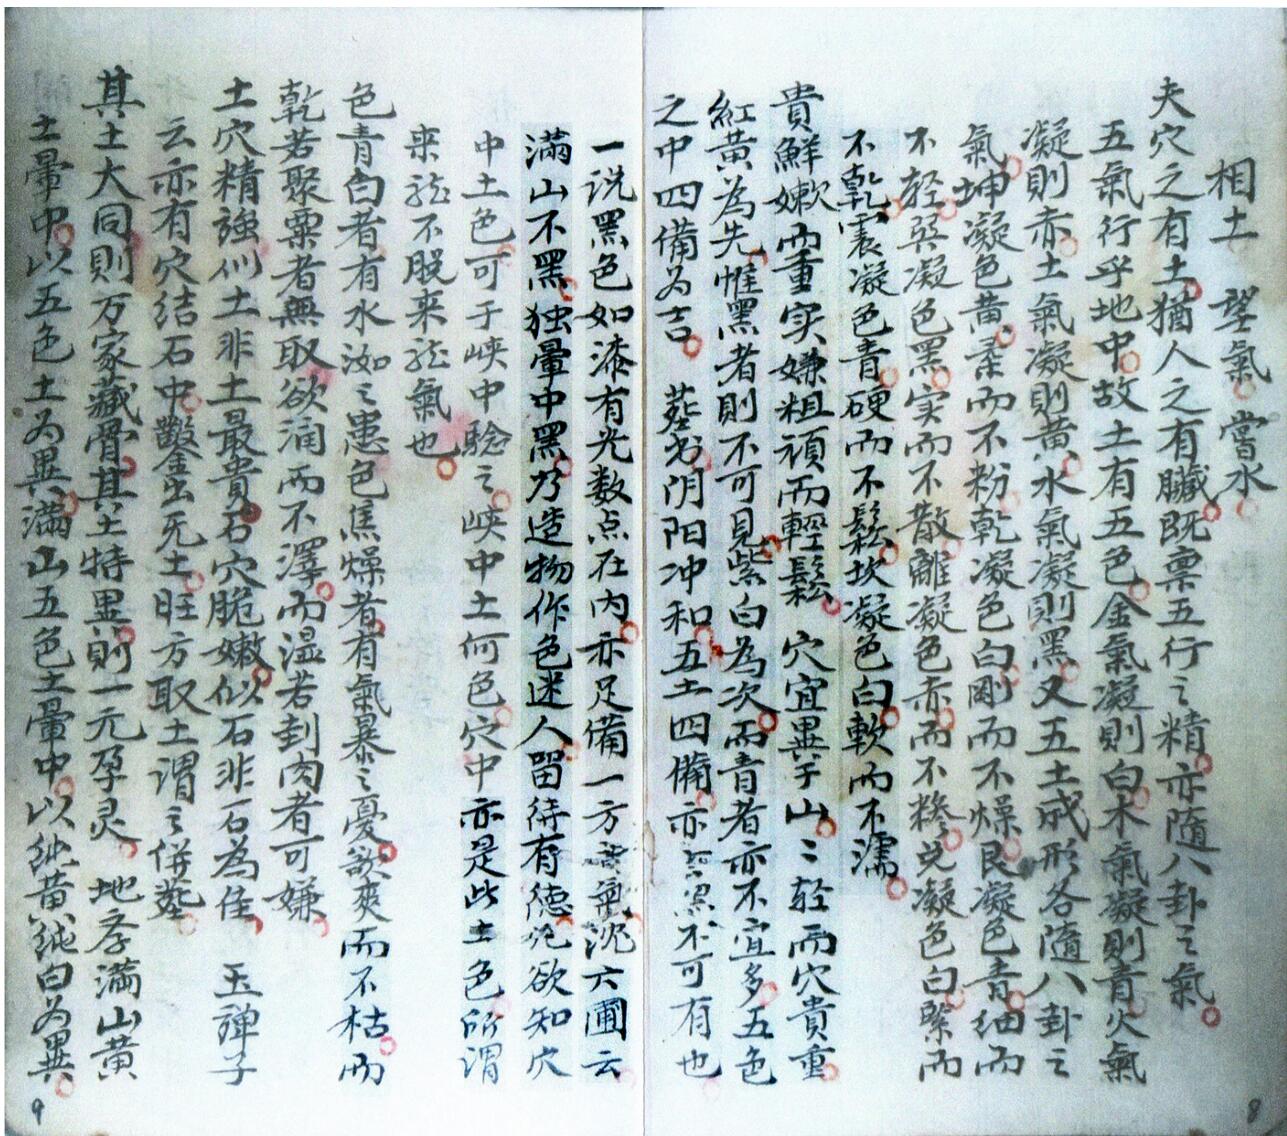 相土 望氣 嘗水
夫穴之有土猶人之有臟既稟五行之精亦隨八卦之氣
五氣行乎地中故土有五色金氣凝則白木氣凝則青火氣
凝則赤土氣凝則黃水氣凝則黑又五土成形各隨八卦之
氣坤凝色黃柔而不粉乾凝色白剛而不燥艮凝色青細而
不轻巽凝色黑实而不散離凝色赤而不糁兑凝色白緊而
不乾震凝色青硬而不鬆坎凝色白軟而不濡
貴鮮嫩而重实嫌粗頑而輕鬆 穴宜異于山〻轻而穴貴重
紅黃為先惟黑者則不可見紫白為次而青者亦不宜多五色
之中四備為吉 葬书阴阳冲和五土四備亦云黑不可有也
一说黑色如漆有光数点在内亦足備一方 氣沈六圃云
滿山不黑独暈中黑乃造物作色迷人留待有德 欲知穴
中土色可于峡中驗之峡中土何色穴中亦是此土色所谓
来龙不脱来龙氣也
色青白者有水 之患色焦燥者有氣暴之憂欲爽而不枯而
乾若聚粟者無取欲润而不澤而湿若刲肉者可嫌
土穴精強似土非土最貴石穴脆嫩似石非石為佳 玉弹子
云亦有穴结石中鑿出无土旺方取土谓之併葬
其土大同則万家藏骨其土特異則一元孕灵 地学滿山黃
土暈中以五色土为異滿山五色土暈中以純黄純白为異
9
8